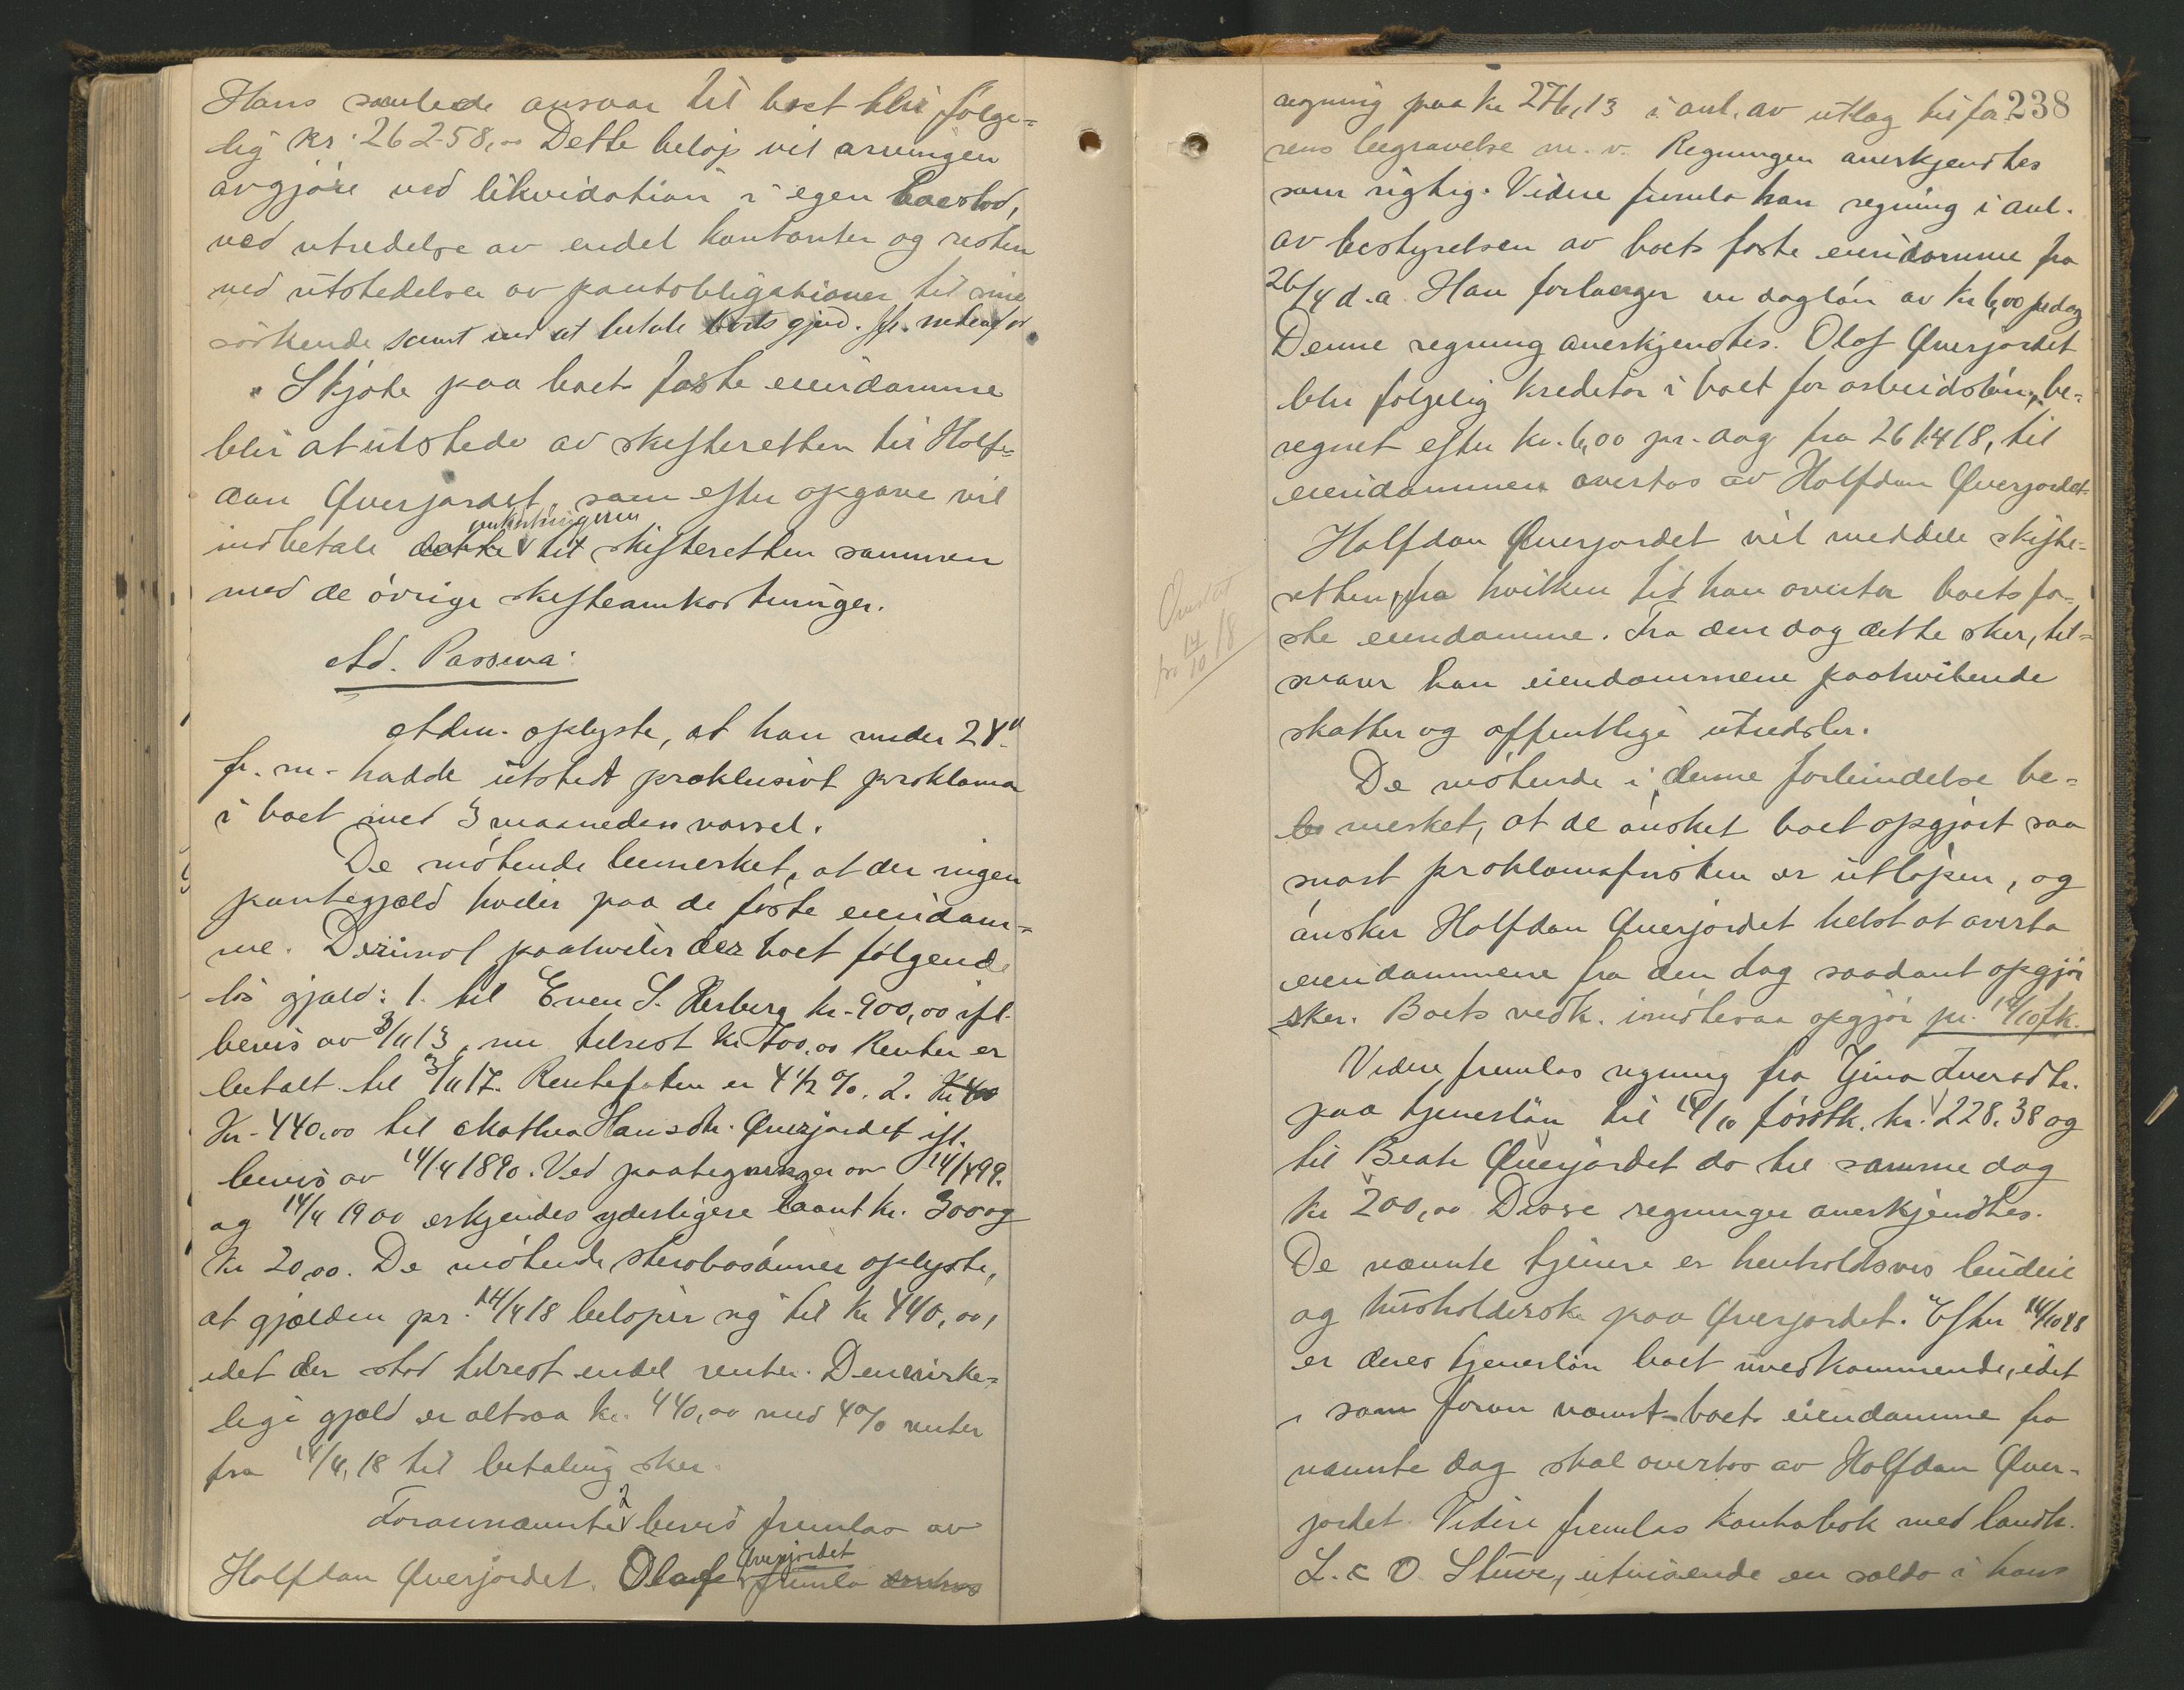 Hans samlede ansvar til boet blir følge=
lig kr. 26258,00 Dette beløp vil arvingen
avgjøre ved likvidation i egen boeslod,
ved utredelse av endel kontanter og resten
ved utstedelse av pantobligationer til sine
søskende samt ved at betale boets gjæld. Jfr. nedenfor.
Skjøte paa boets faste eiendomme
blir at utstede av skifteretten til Half=
dan Øverjordet, som efter opgave vil
omkostningerne
indbetale dette til skifteretten sammen
med de øvrige skifteomkostninger.
Ad. Passiva:
Adm. oplyste, at han under 24de
f. m. hadde utstedt præklusivt proklama
i boet med 3 maaneders varsel.
De møtende bemerket, at der ingen
pantegjæld hviler paa de faste eiendom=
me. Derimot paahviler der boet følgende
løs gjæld: 1. til Even S. Resberg kr. 900,00 ifl.
bevis av 3/11 13, nu tilrest kr. 700,00 Renter er
betalt til 3/11 17. Rentefoten er 4 1/2 %. 2. Kr 40
Kr. 440,00 til Mathea Hansdtr. Øverjordet ifl.
bevis av 14/4 1890. Ved paategninger av 14/4 99.
og 14/4 1900 erkjendes yderligere laant kr. 300 og
kr 20,00. De møtende stervbosønner oplyste,
at gjælden pr. 14/4 18 beløper sig til kr 440,00,
idet der stod tilrest endel renter. Den virke=
lige gjæld er altsaa kr. 440,00 med 4% renter
fra 14/4, 18 til betaling sker.
2
Forannævnte bevis fremlaa av
Øverjordet
Halfdan Øverjordet. Olaf fremla
238
regning paa kr 276,13 i anl. av utlæg til fa
rens begravelse m. v. Regningen anerkjendtes
som rigtig. Videre fremla han regning i anl.
av bestyrelsen av boets faste eiendomme fra
26/4 d. a. Han forlanger en dagløn av kr 6,00 pr dag
Denne regning anerkjendtes. Olaf Øverjordet
blir følgelig kreditor i boet for arbeidsløn, be=
regnet efter kr. 6,00 pr. dag fra 26/4 18, til
eiendommen overtas av Halfdan Øverjordet.
Halfdan Øverjordet vil meddele skifte=
retten, fra hvilken tid han overtar boets fa=
ste eiendomme. Fra den dag dette sker, til=
svarer han eiendommene paahvilende
skatter og offentlige utredsler.
Overtat
pr 14/10 18
De møtende i denne forbindelse be=
merket, at de ønsket boet opgjort saa
snart proklamafristen er utløpen, og
ønsker Halfdan Øverjordet helst at overta
eiendommene fra den dag saadant opgjør
sker. Boets vedk. imøtesaa opgjør pr. 14/10 fk.
Videre fremlas regning fra Gina Iversdtr.
paa tjenerløn til 14/10 førstk. kr. 228.38 og
til Beate Øverjordet do til samme dag
kr 200,00 Disse regninger anerkjendtes.
De nævnte tjenere er henholdsvis budeie
og husholderske paa Øverjordet. Efter 14/10 18
er deres tjenerløn boet uvedkommende, idet
som foran nævnt boets eiendomme fra
nævnte dag skal overtas av Halfdan Øver=
jordet. Videre fremlas kontrabok med landh.
L. & O. Stuve, utvisende en saldo i hans